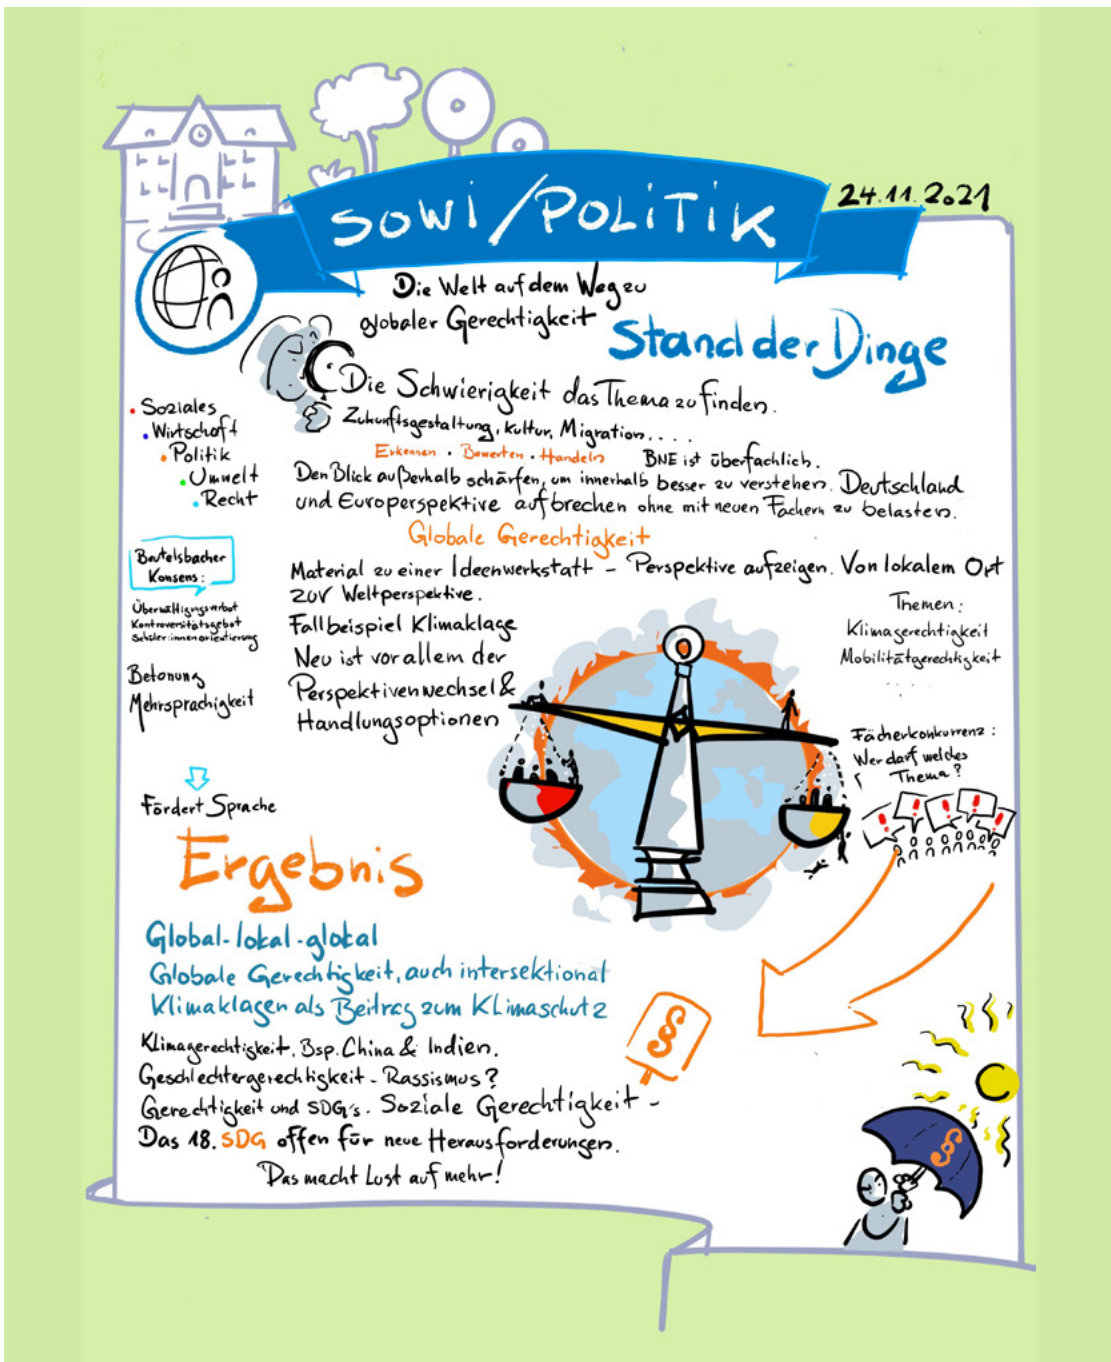 SOWI/POLITIK
24.11.2021
Die Welt auf dem Weg zu
globaler Gerechtigkeit
Stand der Dinge
Die Schwierigkeit das Thema zu finden.
Zukunftsgestaltung, Kultur, Migration....
Erkennen • Bewerten • Handeln BNE ist überfachlich.
Den Blick außerhalb schärfen, um innerhalb besser zu verstehen. Deutschland
und Europerspektive aufbrechen ohne mit neuen Fächern zu belasten.
• Soziales
• Wirtschaft
• Politik
• Umwelt
• Recht
Globale Gerechtigkeit
Material zu einer Ideenwerkstatt – Perspektive aufzeigen. Von lokalem Ort
zur Weltperspektive.
Fallbeispiel Klimaklage
Neu ist vor allem der
Perspektivenwechsel &
Handlungsoptionen
Beutelsbacher
Konsens:
Überwältigungsverbot
Kontroversitätsgebot
Schüler:innenorientierung
Betonung
Mehrsprachigkeit
Fördert Sprache
Themen:
Klimagerechtigkeit
Mobilitätgerechtigkeit
.....
Fächerkonkurrenz:
Wer darf welches
Thema?
! ! ! ! !
Ergebnis
Global-lokal-global
Globale Gerechtigkeit, auch intersektional
Klimaklagen als Beitrag zum Klimaschutz
§
Klimagerechtigkeit, Bsp. China & Indien.
Geschlechtergerechtigkeit - Rassismus?
Gerechtigkeit und SDG's. Soziale Gerechtigkeit -
Das 18. SDG offen für neue Herausforderungen.
Das macht Lust auf mehr!
§